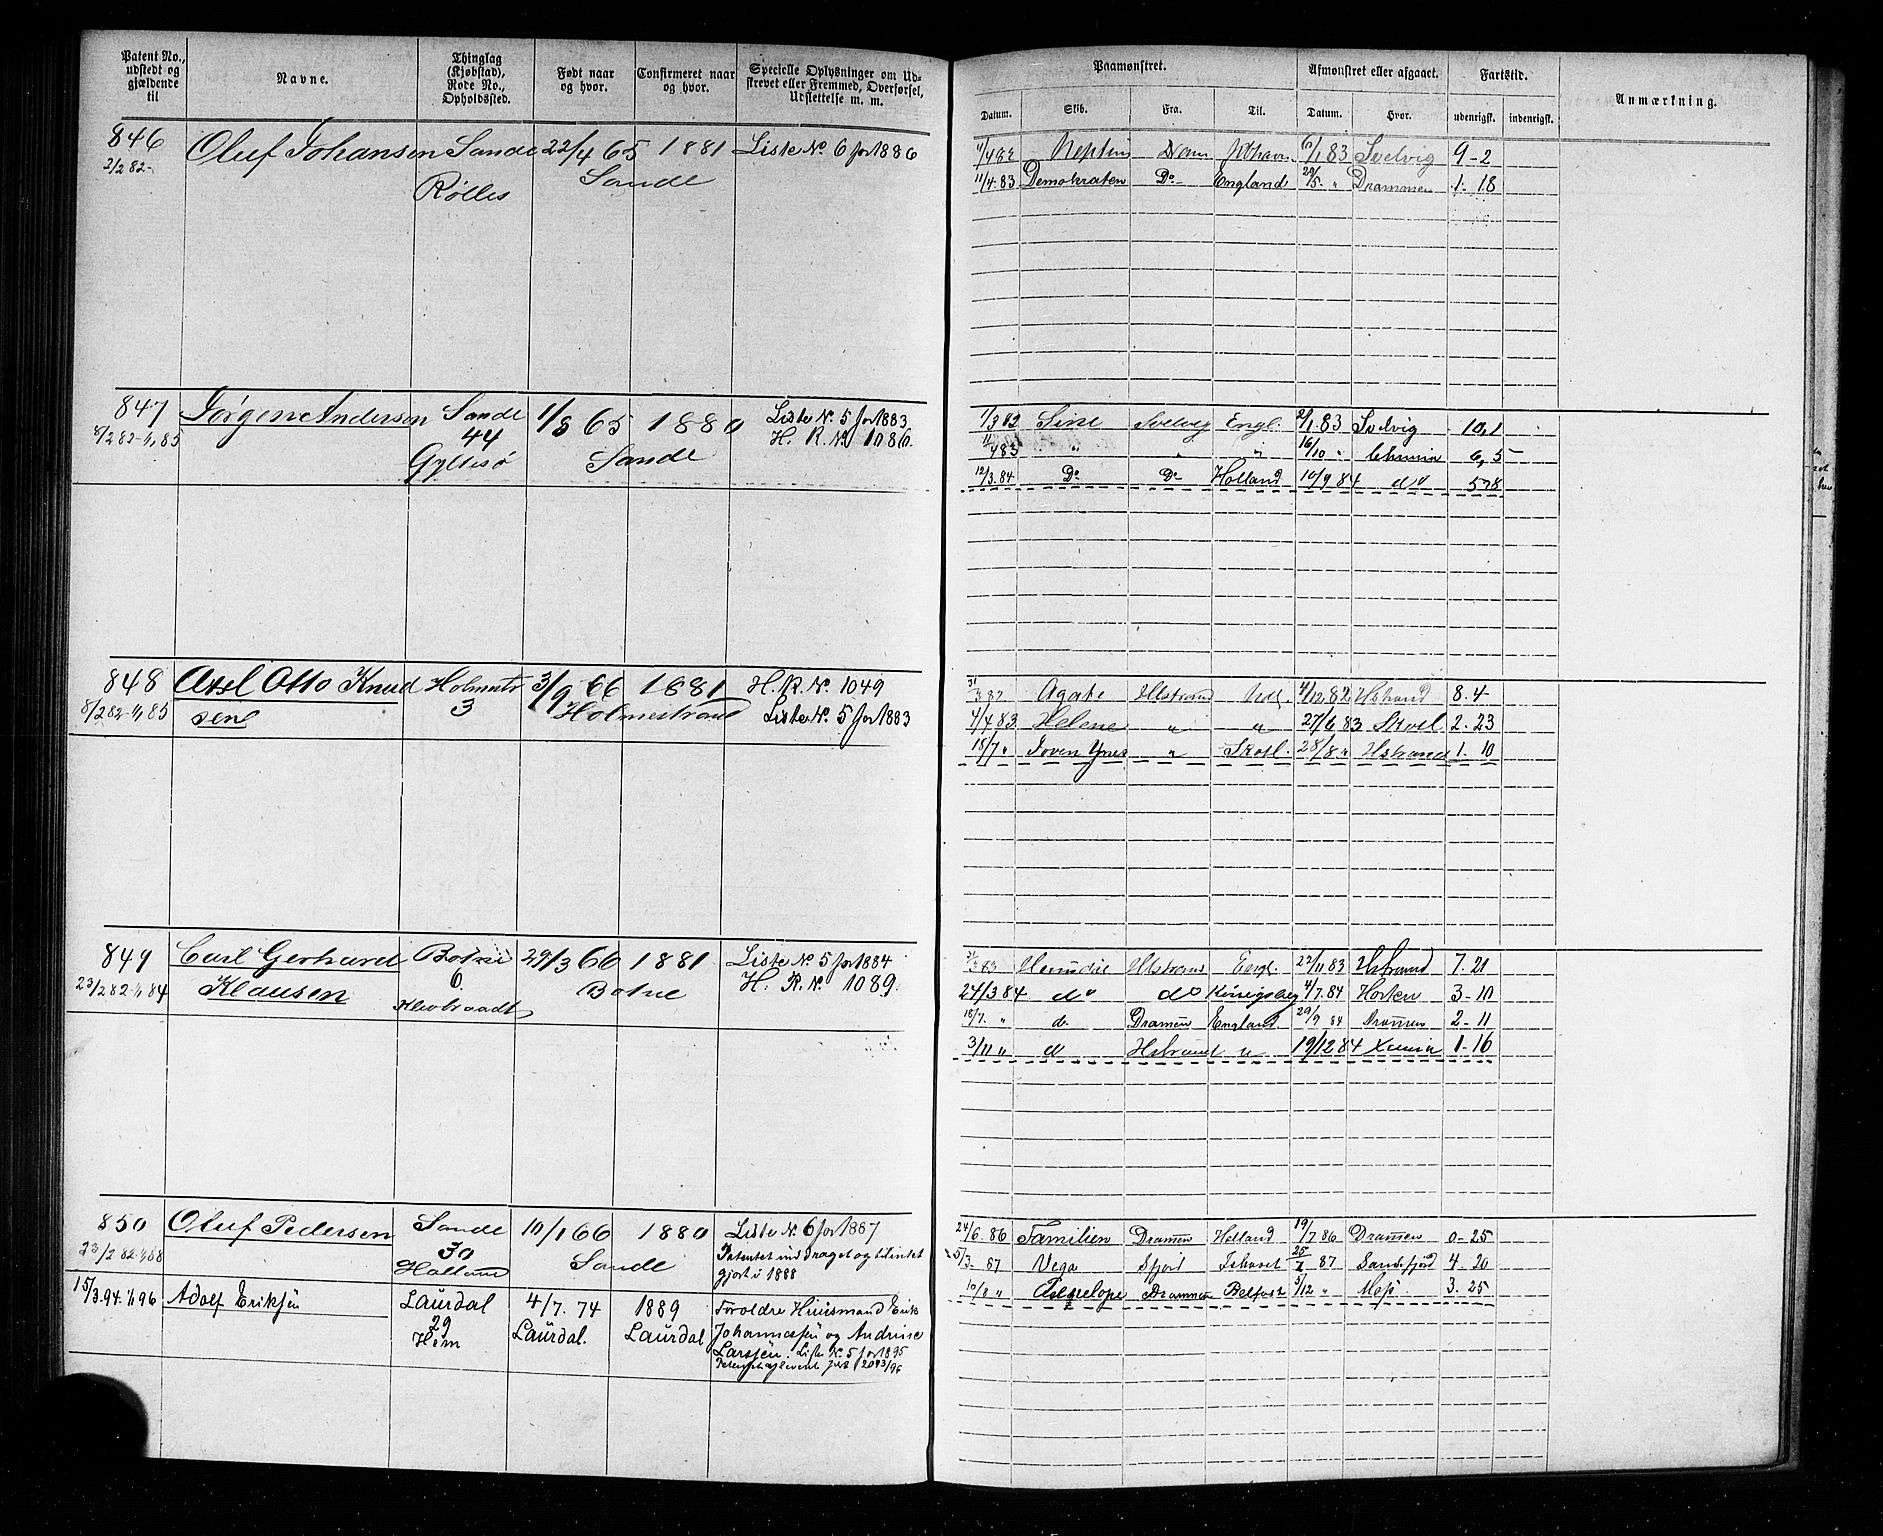 Patent No., udstedt og gjældende til
Navne.
Thinglag (Kjøbstad), Rode No., Opholdssted.
Født naar og hvor.
Confirmeret naar og hvor.
Specielle Oplysninger om Udskrevet eller Fremmed, Overførsel, Udslettelse m. m.
Paamønstret.
Afmønstret eller afgaaet.
Fartstid.
Anmærkning.
Datum.
Skib.
Fra.
Til.
Datum.
Hvor.
udenrigsk.
indenrigsk.
846 Oluf Johansen Sande 22/4 65 1881 Liste No. 6 for 1886
2/2 82- Sande
Rølles
11/4 82 Neptun 83 Svelvig 9-2
11/4.83 Demokraten Do England 29/5. " Drammen 1-18
847 Jørgen Andersen Sande 1/5 65 1880 Liste No. 5 for 1883
8/2 82-1/1 85 44 H. R. No. 1086.
Gyltesø Sande
1/3 82 Sine Svelvig Engl. 2/1 83 Svelvig 10,1
11/4 83 " " " 16/10 " Chrania 6,5
12/3.84 Do Do Holland 10/9 84 do 5-28
848 Axel Otto Knud Holmestr 3/9 66 1881 H. R. No. 1049
8/2 82-1/1 85 sen 3 Holmestrand Liste No. 5 for 1883
31/3 82 Agate Hlstrand Udl. 4/12 82 Hstrand 8-4
4/4 83 Helene " " 27/6 83 Skotl 2-23
18/7 " " Skotl. 28/8 " Hstrand 1-10
849 Carl Gerhard Botne 29/3 66 1881 Liste No. 5 for 1884
23/2 82-1/1 84 Klausen 6. Botne H. R. No. 1089.
83 Hlstrand Engl. 22/11 83 Hstrand 7-21
24/3 84 do do Kønigsberg 4/7.84 Horten 3-10
18/7. " d. Dramen England. 29/9 84 Dramen 2-11
3/11 " d Hstrand " 19/12 84 Xania 1-16
850 Oluf Pedersen Sande 10/1 66 1880 Liste No. 6 for 1887
23/2 82-1/1 88 30 Sande Patentet inddraget og tilintet
Holland gjort i 1888
24/6. 86 Familien Dramen Holland 19/7 86 Dramen 0-25
5/3. 87 Vega Sfjord Ishavet 87 Sandefjord 4-20
10/8 " Penelope Drammen Belfast 5/12 " Mosś 3-25
15/3.94-1/1 96 Adolf Eriksen Laurdal 4/7. 74 1889 Foreldre Huusmand Erik
29 Laurdal. Laurdal Johannesen og Andrine
Hem Larsen. Liste No. 5 for 1895
2043/96